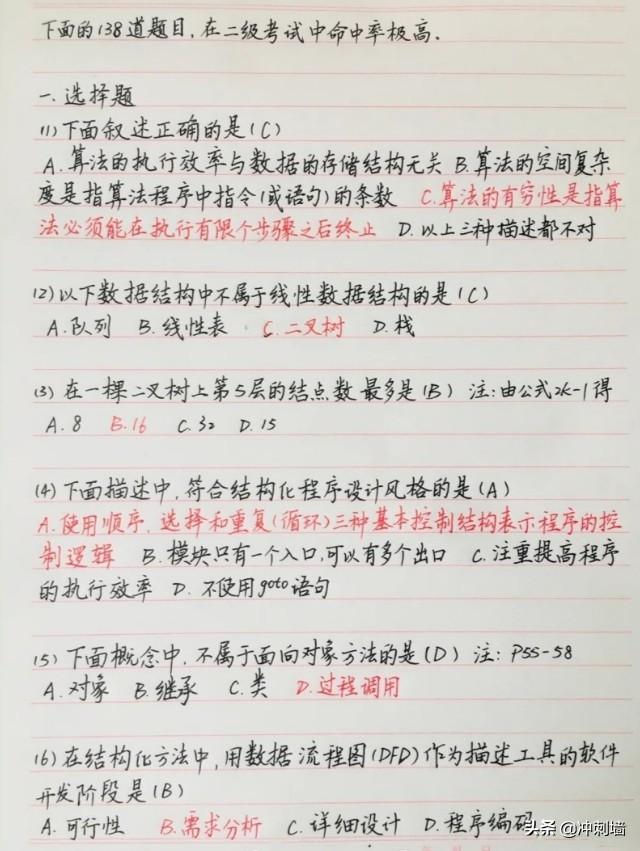 下面的138道题目,在二级考试中命中率极高.
一.选择题
(1)下面叙述正确的是(C)
A.算法的执行效率与数据的存储结构无关 B.算法的空间复杂
度是指算法程序中指令(或语句)的条数 C.算法的有穷性是指算
法必须能在执行有限个步骤之后终止 D.以上三种描述都不对
(2)以下数据结构中不属于线性数据结构的是(C)
A.队列 B.线性表 C.二叉树 D.栈
(3)在一棵二叉树上第5层的结点数最多是(B) 注:由公式2k-1得
A.8 B.16 C.32 D.15
(4)下面描述中,符合结构化程序设计风格的是(A)
A.使用顺序、选择和重复(循环)三种基本控制结构表示程序的控
制逻辑 B.模块只有一个入口,可以有多个出口 C.注重提高程序
的执行效率 D.不使用goto语句
(5)下面概念中,不属于面向对象方法的是(D) 注:P55-58
A.对象 B.继承 C.类 D.过程调用
(6)在结构化方法中,用数据流程图(DFD)作为描述工具的软件
开发阶段是(B)
A.可行性 B.需求分析 C.详细设计 D.程序编码
头条 @冲刺墙